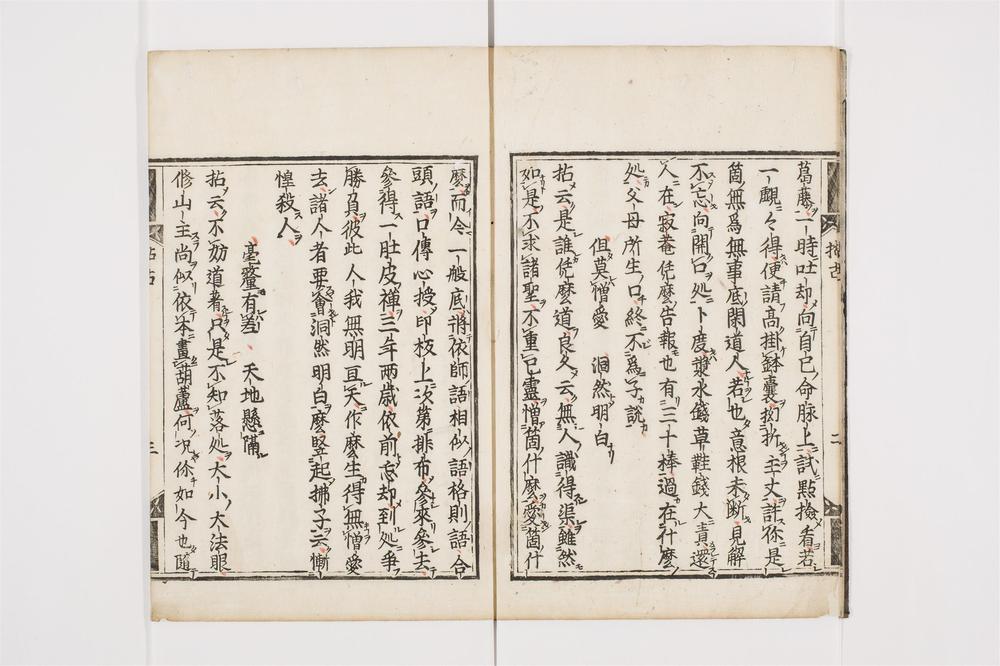 葛藤一時吐却向自己命脉上試點撿看若
一覰々得便請高掛鉢囊拗折主丈許你是
箇無爲無事底閑道人若也意根未斷見解
不忘向開口处卜度漿水錢草鞋錢大責還
人在寂菴凭麽告報也有三十棒過在什麽
处父母所生口終不爲子說
但莫憎愛　洞然明白
拈云是誰凭麽道良久云無人識得渠雖然
如是不求諸聖不重己靈憎箇什麽愛箇什
麽而今一般底將依師語相似語格則語合
頭語口傳心授印板上次第排布參來參去
參得一肚皮禪三年兩歲依前忘却到処爭
勝負彼此人我無明亘天作麽生得無憎愛
去諸人者要會洞然明白麽竪起拂子云慚
惶殺人
毫釐有差　天地懸隔
拈云不妨道著只是不知落处大小大法眼
修山主尚似依本畫葫蘆何况你如今也隨
二
三